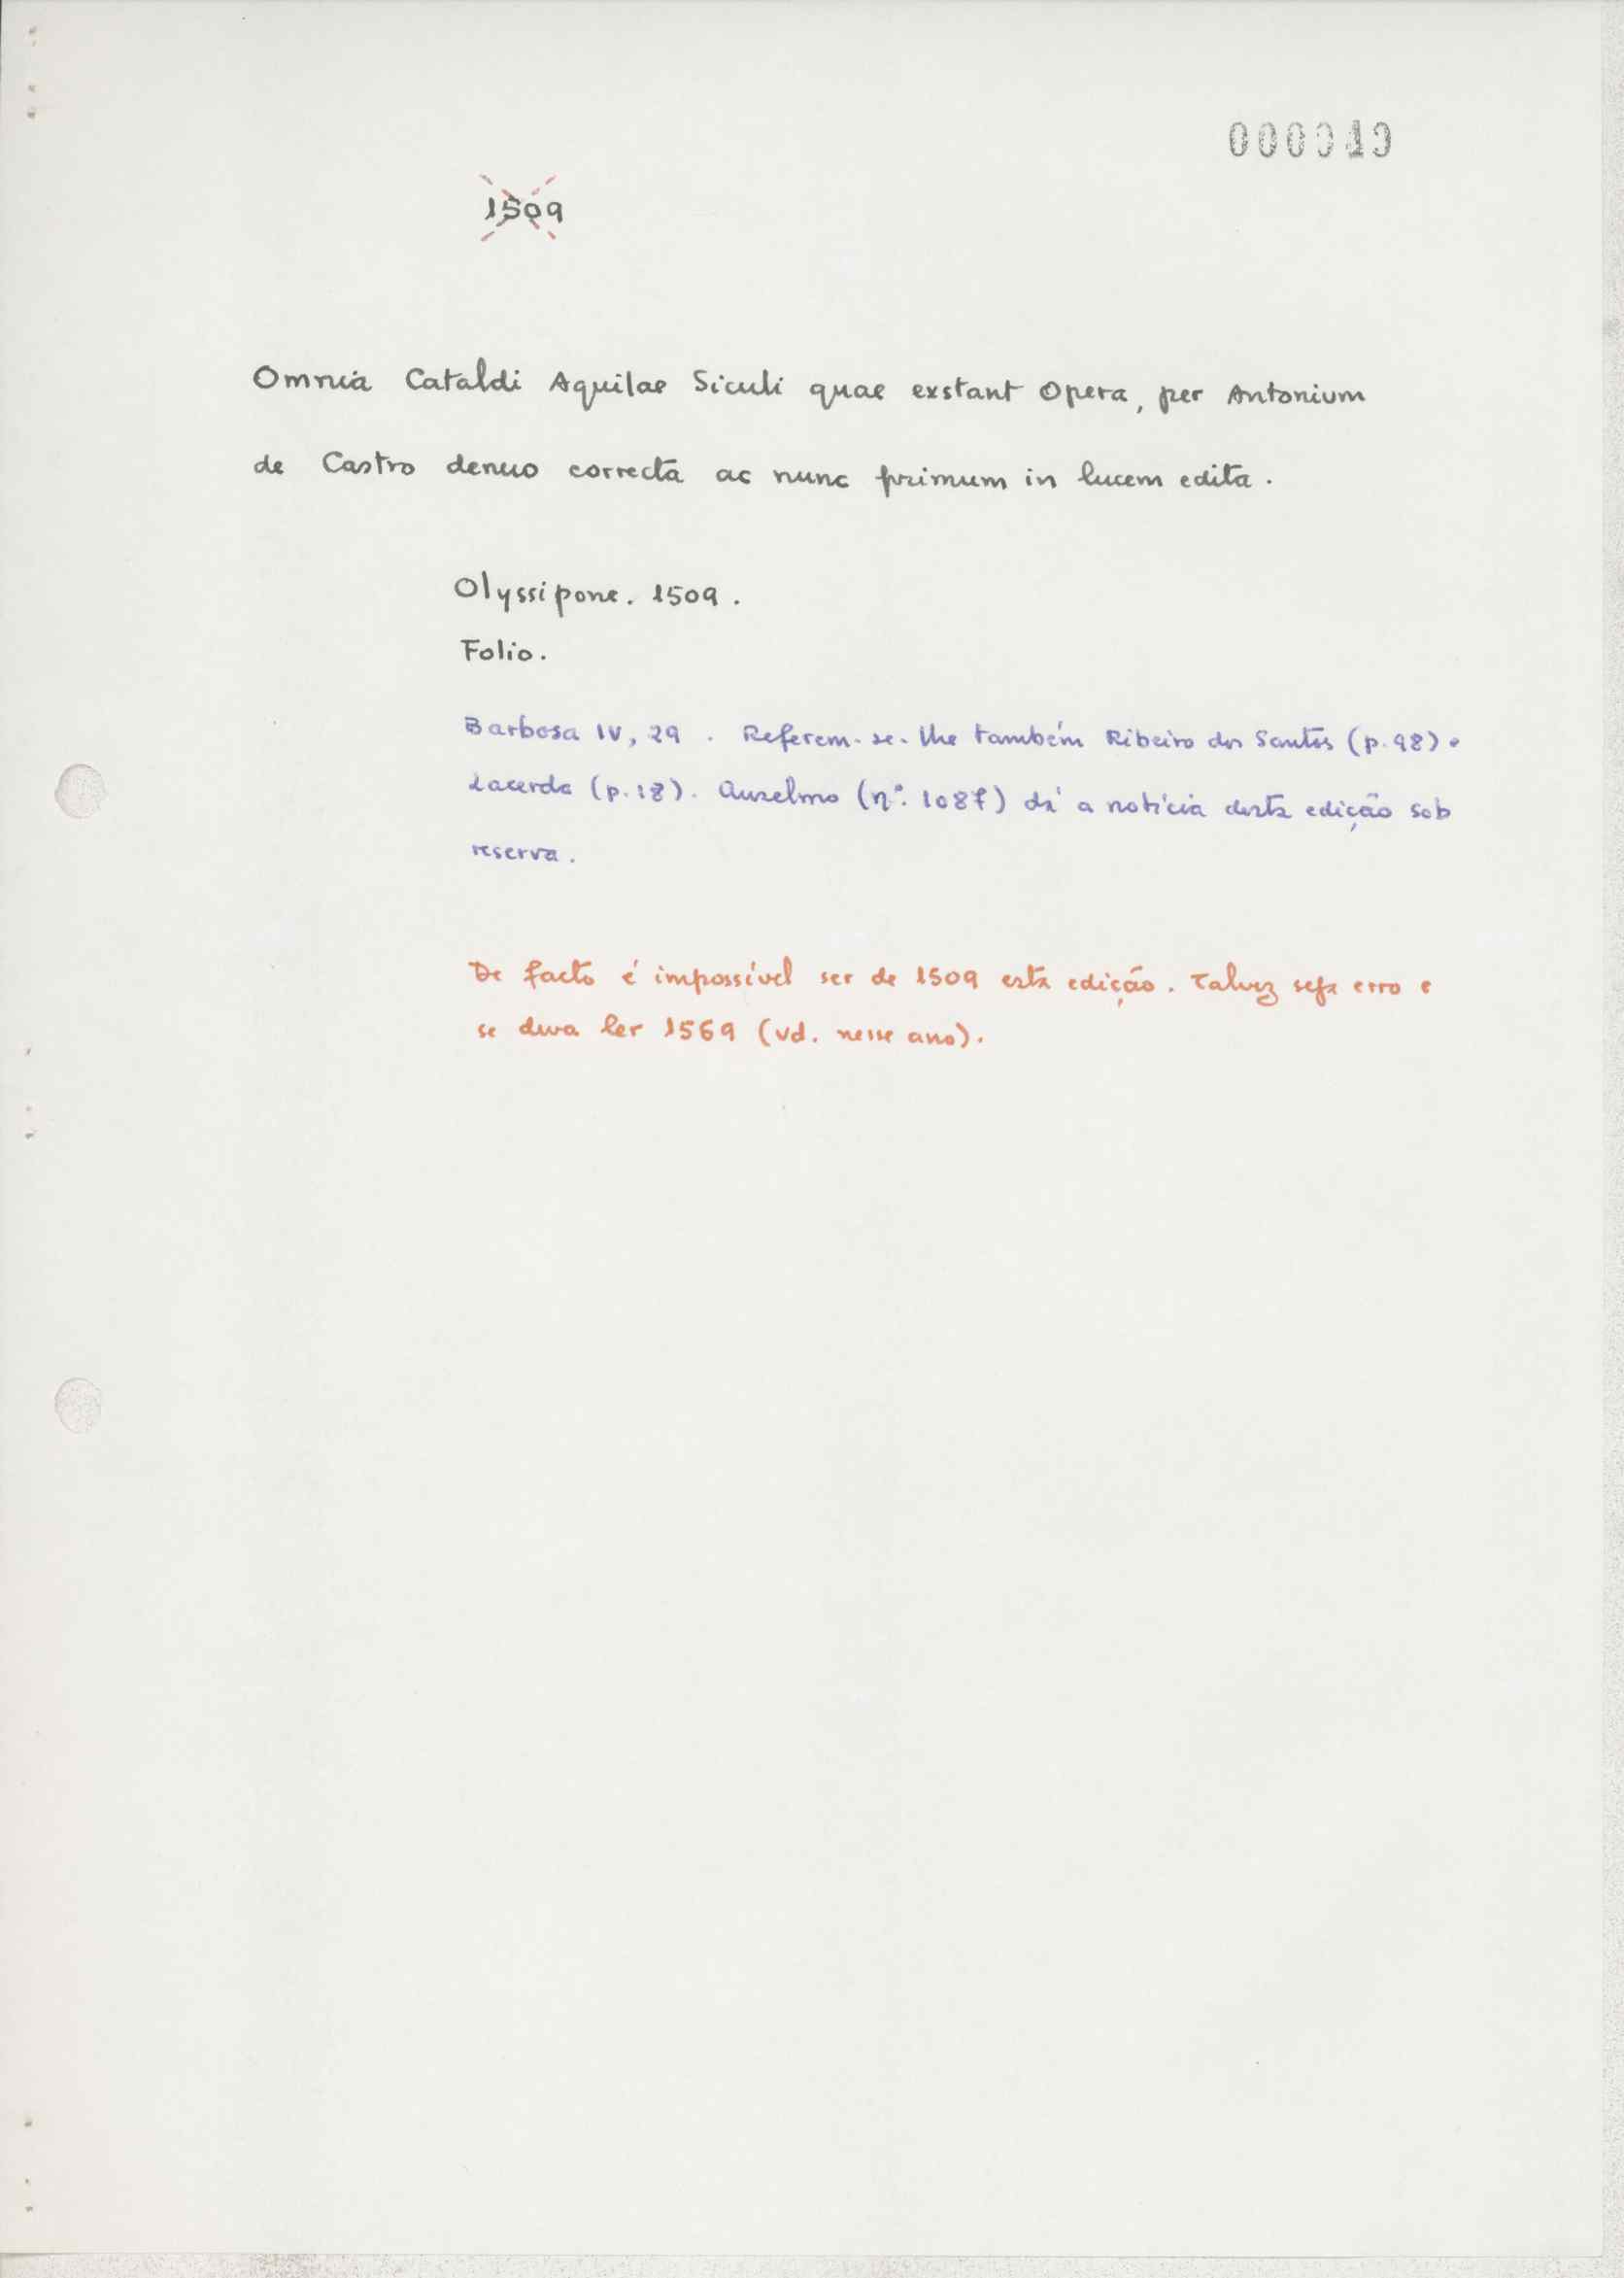 000019
1509
Omnia Cataldi Aquilae Siculi quae exstant Opera, per Antonium
de Castro denuo correcta ac nunc primum in lucem edita.
Olyssipone. 1509.
Folio.
Barbosa IV, 29. Referem-se-lhe também Ribeiro dos Santos (p. 98) e
Lacerda (p. 18). Anselmo (nº. 1087) dá a notícia desta edição sob
reserva.
De facto é impossível ser de 1509 esta edição. Talvez seja erro e
se deva ler 1569 (vd. nesse ano).